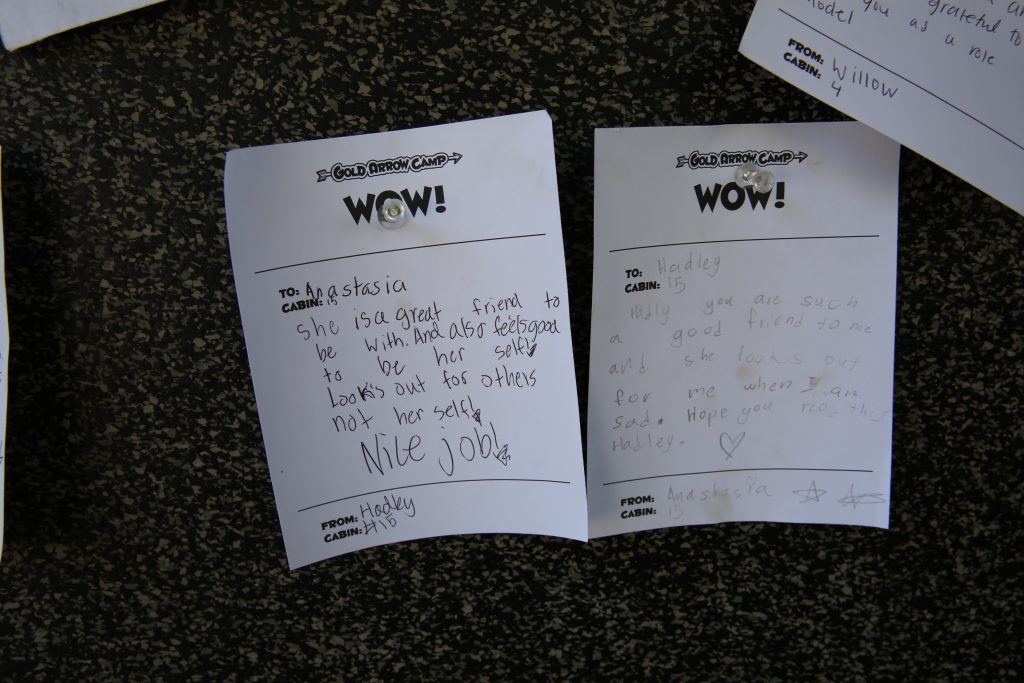 GOLD ARROW CAMP
WOW!
TO: Anastasia
CABIN: 15
she is a great friend to
be with. And also feels good
to be her self!
Look's out for others
not her self!
Nice job!
FROM: Hadley
CABIN: #15
GOLD ARROW CAMP
WOW!
TO: Hadley
CABIN: 15
Hadly you are such
a good friend to me
and she looks out
for me when I am
sad. Hope you read this
Hadley.
FROM: Anastasia
CABIN: 15
grateful to
you as a role
model
FROM: Willow
CABIN: 4